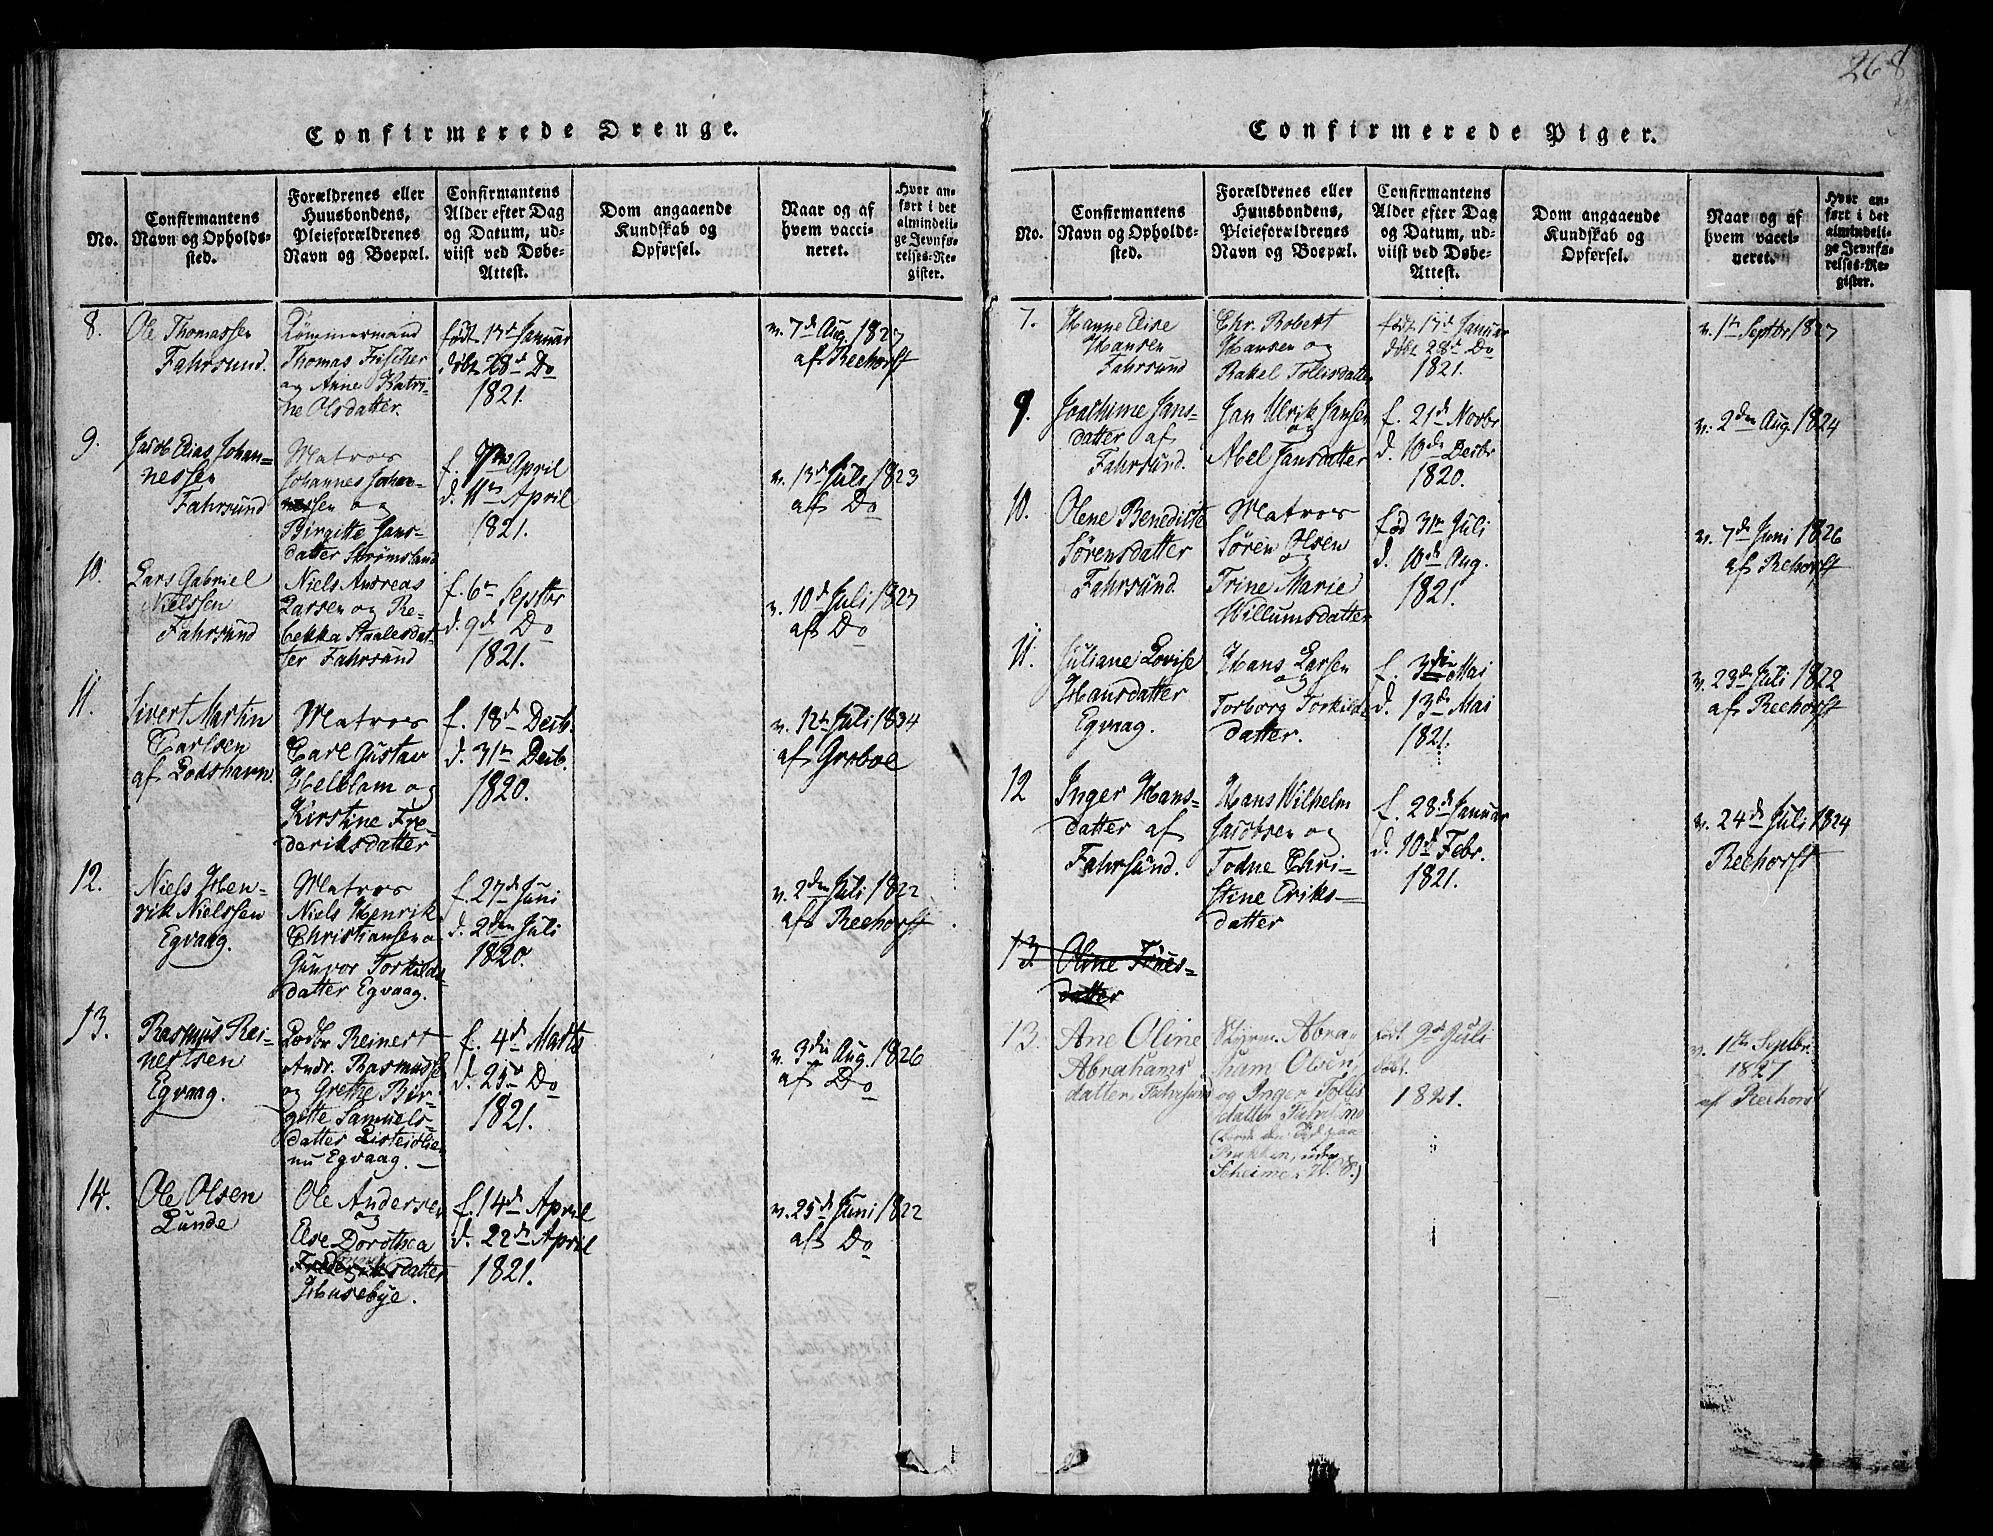 268
Confirmerede Drenge.
No.
Confirmantens
Navn og Opholds-
sted.
Forældrenes eller
Huusbondens,
Pleieforældrenes
Navn og Boepæl.
Confirmantens
Alder efter Dag
og Datum, ud-
viist ved Døbe-
Attest.
Dom angaaende
Kundskab og
Opførsel.
Naar og af
hvem vacci-
neret.
Hvor an-
ført i det
almindeli-
ge Jevnfø-
relses-Re-
gister.
8.
Ole Thomassen
Fahrsund.
Tømmermand
Thomas Fischer
og Anne Katri-
ne Olsdatter.
født 17d Januar
døbt 28d Do
1821.
v. 7d Aug. 1827
af Reehorst
9.
Jacob Elias Johan-
nessen
Fahrsund
Matros
Johannes Johan-
nessen og
Birgitte Jans-
datter Strømsland
f. 7de April
d. 11te April
1821.
v. 17d Juli 1823
af Do
10.
Lars Gabriel
Nielssen
Fahrsund
Niels Andreas
Larsen og Re-
bekka Staalesdat-
ter Fahrsund
f. 6te Septbr
d. 9d Do
1821.
v. 10d Juli 1827
af Do
11.
Sivert Martin
Carlsen
af Lodshavn.
Matros
Carl Gustav
Helblam og
Kirstine Fre-
deriksdatter
f. 18d Decb.
d. 31te Decb.
1820.
v. 12te Juli 1834
af Greboe
12.
Niels Hen-
rik Nielssen
Egvaag.
Matros
Niels Henrik
Christiansen o
Gunvor Torkilds
datter Egvaag.
f. 27d Juni
d. 2den Juli
1820.
v. 2den Juli 1822
af Reehorst
13.
Rasmus Rei-
nertsen
Egvaag.
Lodbr Reinert
Andr. Rasmusse
og Grethe Bir-
gitte Samuels-
datter
nu Egvaag.
f. 4d Marts
d. 25d Do
1821.
v. 3die Aug. 1826
af Do
14.
Ole Olsen
Lunde
Ole Andersen
og
Else Dorothea
Frederiksdatter
Husebye.
f. 14d April
d. 22d April
1821.
v. 25d Juni 1822
af Do
Confirmerede Piger.
No.
Confirmantens
Navn og Opholds-
sted.
Forældrenes eller
Huusbondens,
Pleieforældrenes
Navn og Boepæl.
Confirmantens
Alder efter Dag
og Datum, ud-
viist ved Døbe-
Attest.
Dom angaaende
Kundskab og
Opførsel.
Naar og af
hvem vacci-
neret.
Hvor an-
ført i det
almindeli-
ge Jevnfø-
relses-Re-
gister.
7.
Hanne Elise
Hansen
Fahrsund
Chr. Robert
Hansen og
Rakel Tollisdatter
født 17d Januar
døbt 28d Do
1821.
v. 1te Septbr 1827
9.
Joachime Jans-
datter af
Fahrsund.
Jan Ulrik Jansen
og
Abel Jansdatter
f. 21d Novbr
d. 10de Decbr
1820.
v. 2den Aug. 1824
10.
Olene Benedicte
Sørensdatter
Fahrsund.
Matros
Søren Olsen
Trine Marie
Willumsdatter
fød 31te Juli
d. 10de Aug.
1821.
v. 7de Juni 1826
af Rehorst
11.
Juliane Lovise
Hansdatter
Egvaag.
Hans Larsen
og
Torborg Torkilds
datter.
f. 3die Mai
d. 13de Mai
1821.
v. 23de Juli 1822
af Reehorst
12
Inger Hans-
datter af
Fahrsund.
Hans Wilhelm
Jacobsen og
Todne Chri-
stine Eriks-
datter
f. 28de Januar
d. 10d Febr.
1821.
v. 24de Juli 1824
Reehorst
13
Oline Tønes-
datter
13.
Ane Oline
Abrahams
datter Fahrsund
Styrm. Abra-
ham Olsen,
og Inger Tollis
datter
født 9d Juli
døbt
1821.
v. 1te Septbr.
1827
af Reehorst